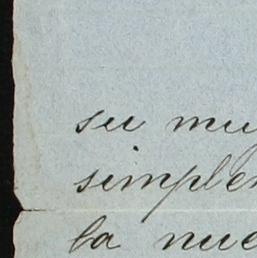 su mu
simplem
la nue